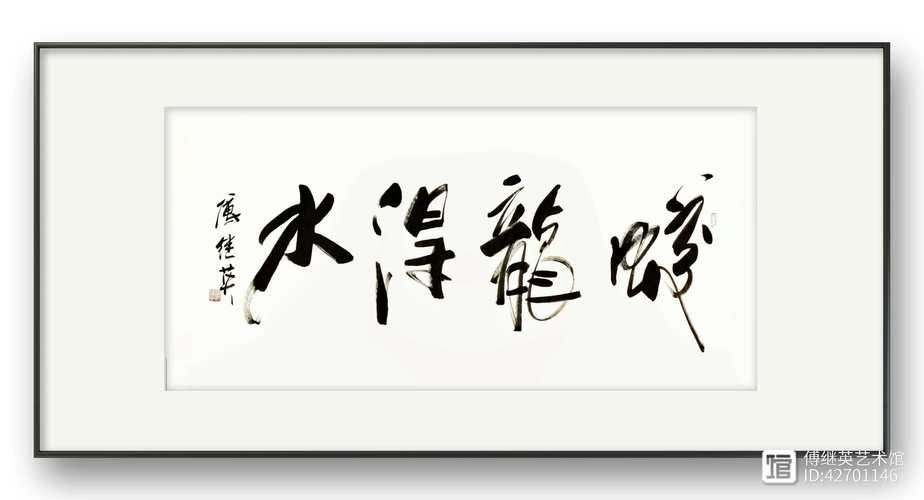 蛟龍得水
傅继英
傅继英艺术馆
ID:42701146